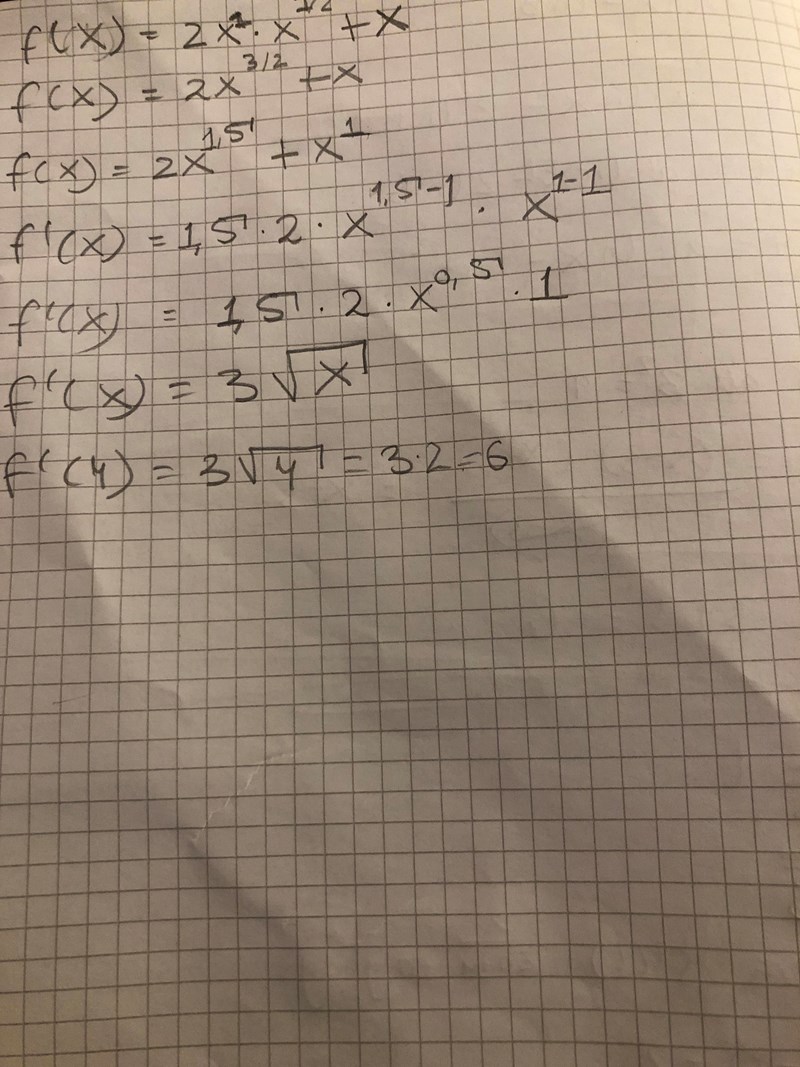 f(x) = 2x¹ · x^1/2 + x
f(x) = 2x^3/2 + x
f(x) = 2x^1,5 + x^1
f'(x) = 1,5 · 2 · x^1,5-1 · x^1-1
f'(x) = 1,5 · 2 · x^0,5 · 1
f'(x) = 3√x
f'(4) = 3√4 = 3·2=6